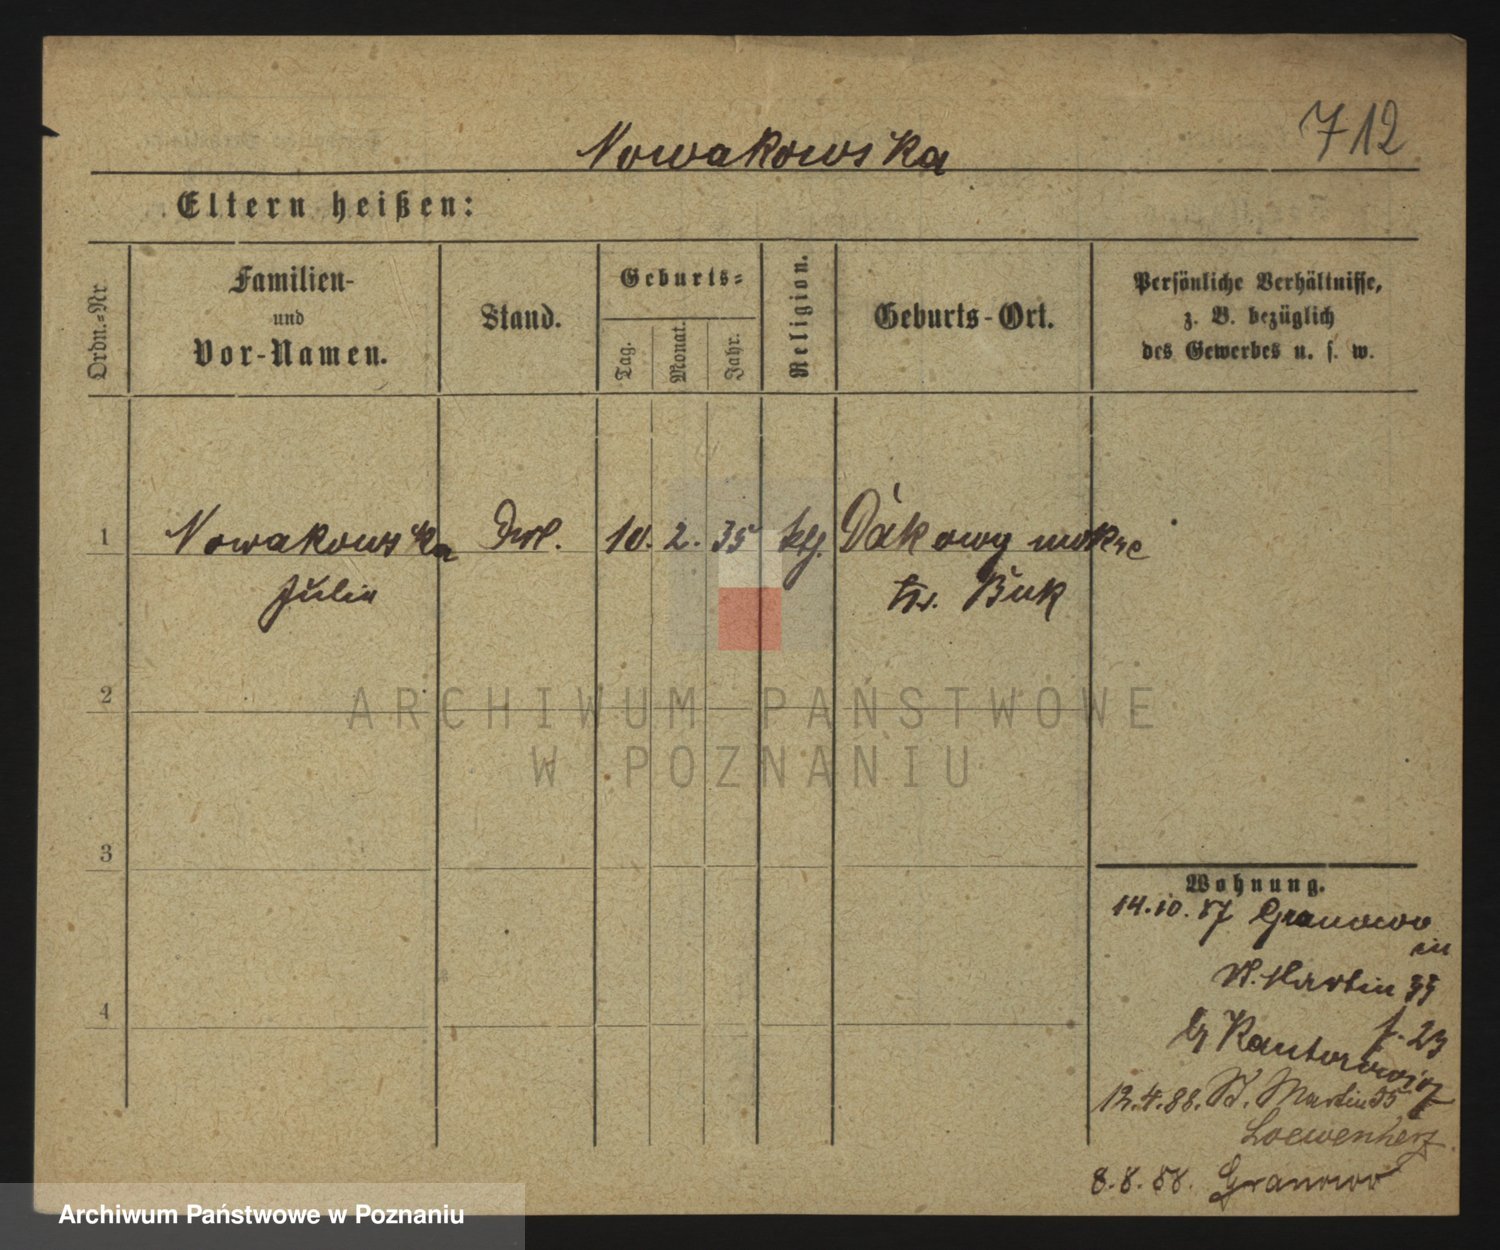 712
Nowakowska
Eltern heißen:
Ordn.-Nr
Familien-
und
Vor-Namen.
Stand.
Geburts-
Tag.
Monat.
Jahr.
Religion.
Geburts-Ort.
Persönliche Verhältnisse,
z. B. bezüglich
des Gewerbes u. s. w.
1 Nowakowska 10. 2. 35 ktg. Dakowy mokre
Julia Kr. Buk
2
ARCHIWUM PAŃSTWOWE
W POZNANIU
3
Wohnung.
14.10.87 Granowo
in
St. Martin 35
f. 23
Kantorowicz
4
12.4.88. St. Martin 35
Loewenherz
8.8.88. Granowo
Archiwum Państwowe w Poznaniu